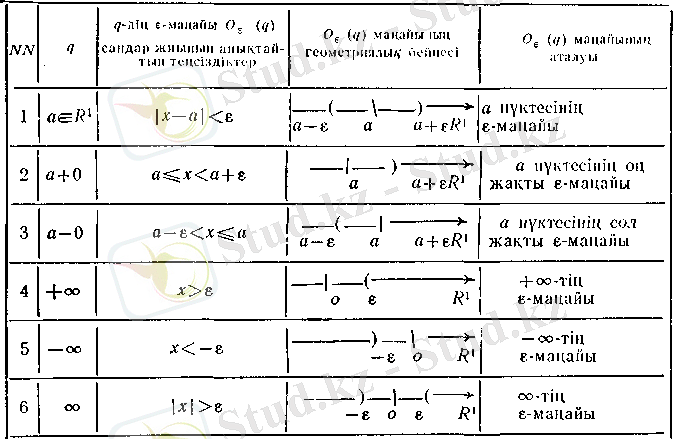 NN
q
q-дің ε-маңайы Oε (q)
сандар жиынын анықтай-
тын теңсіздіктер
Oε (q) маңайының
геометриялық бейнесі
Oε (q) маңайының
аталуы
1 a∈R¹ |x−a|<ε
——(——\——)——→
a−ε a a+εR¹
a нүктесінің
ε-маңайы
2 a+0 a⩽x<a+ε
——|——)——→
a a+εR¹
a нүктесінің оң
жақты ε-маңайы
3 a−0 a−ε<x⩽a
——(——|——→
a−ε a a+εR¹
a нүктесінің сол
жақты ε-маңайы
4 +∞ x>ε
—|—(——→
o ε R¹
+∞-тің
ε-маңайы
5 −∞ x<−ε
———)—\——→
−ε o R¹
−∞-тің
ε-маңайы
6 ∞ |x|>ε
——)—|—(——→
−ε o ε R¹
∞-тің
ε-маңайы
Stud.kz - Stud.kz
Stud.kz - Stud.kz